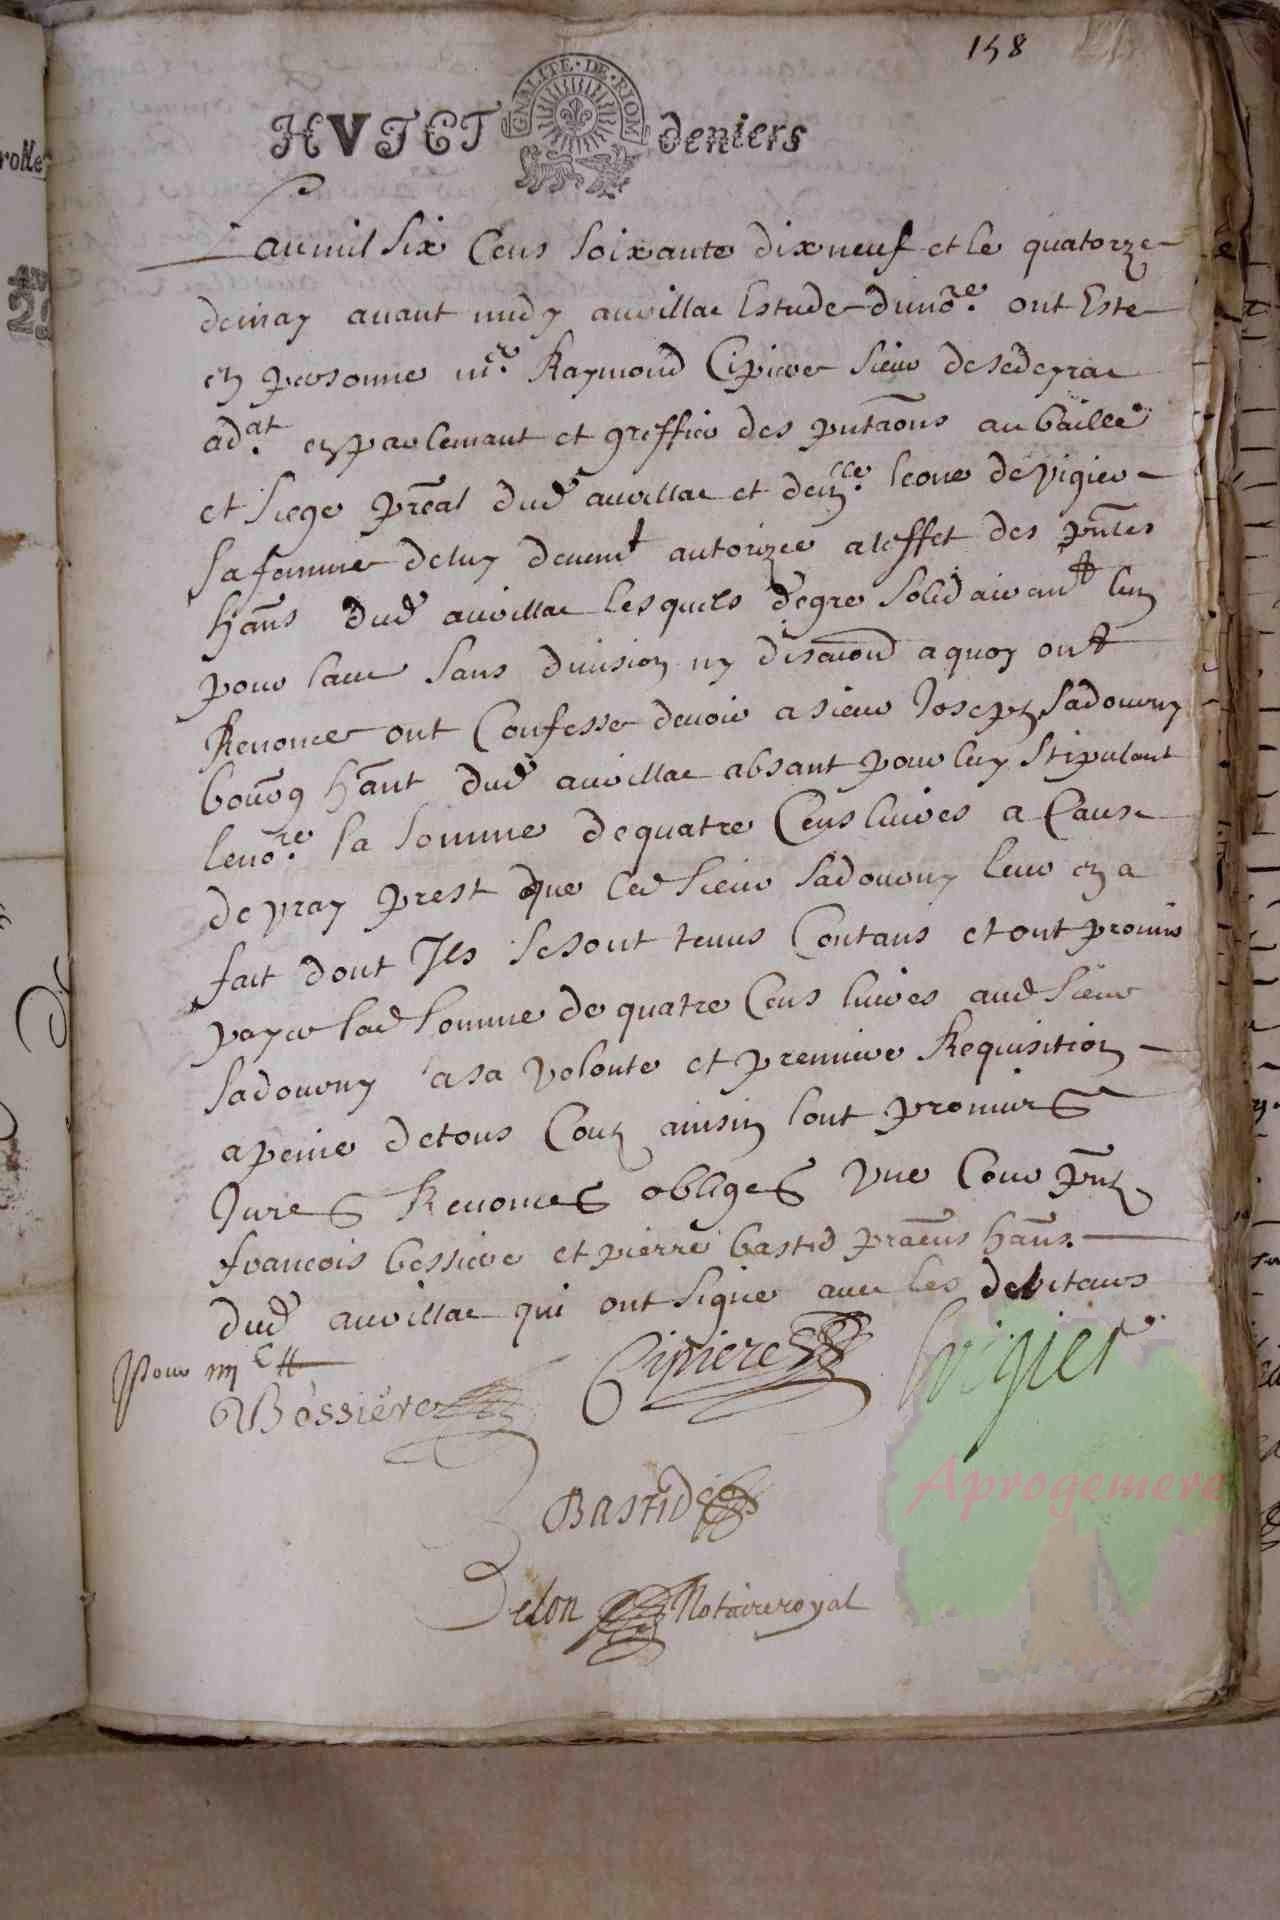 158
HVJCT deniers
GNALITE·DE·RIOM
Lan mil six Cens soixante dix neuf et le quatorze
de may auant midy aurillac Estude du no.re ont Este
en personne m.e Raymond Cipiere sieur de sedeyrac
ad.at en parlemant et greffier des pntaôns au baille
et siege preal dud aurillac et dem.lle leone de vigier
sa femme deluy deuemt autorizee a leffet des pntes
hans dud aurillac lesquels de gre solidairemt lun
pour laue sans diuision ny discuond a quoy ont
Renonce ont Confesse deuoir a sieur Joseph sadourny
bourg hant dud aurillac absant pour luy stipulant
le no.re la somme de quatre Cens liures a Cause
de vray prest que led sieur sadourny leur en a
fait dont Ils se sont tenus Contans et ont promis
payer lad somme de quatre Cens liures aud sieur
sadourny a sa volonte et premiere Requisition
a peine de tous Couz ainsin lont promis
Jures Renonces obliges vne Cour pnz
francois bessiere et pierre bastid praens hans
dud aurillac qui ont signe auec les debiteurs
Pour IIII C tt
Bessiere
Cipiere
Lvigier
BASTIDE
Delon Notaire royal
rolle
Aprogemere